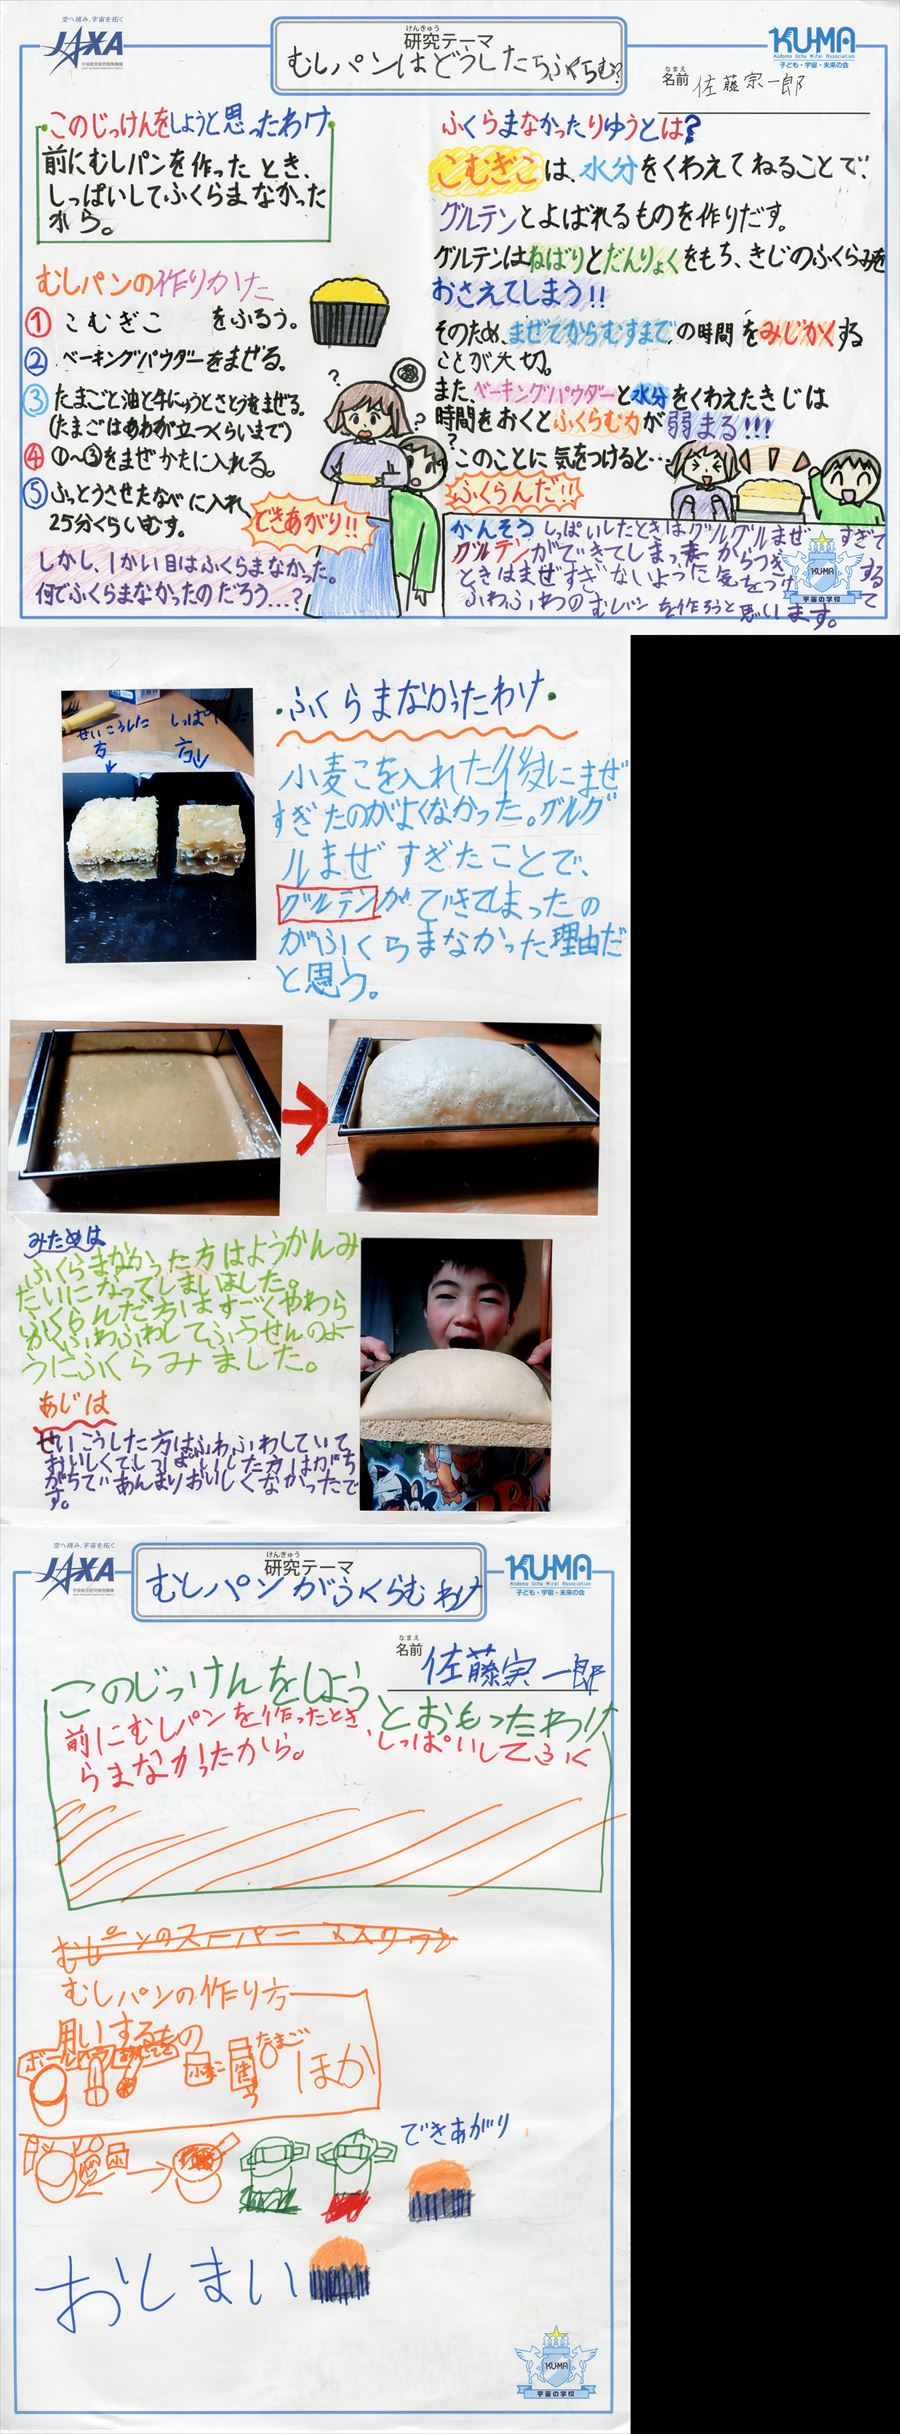 空へ挑み、宇宙を拓く
JAXA
宇宙航空研究開発機構
けんきゅう
研究テーマ
むしパンはどうしたらふくらむ?
KU-MA
Kodomo Uchu Mirai Association
子ども・宇宙・未来の会
なまえ
名前 佐藤宗一郎
このじっけんをしようと思ったわけ
前にむしパンを作ったとき、
しっぱいしてふくらまなかった
から。
むしパンの作りかた
① こむぎこ をふるう。
② ベーキングパウダーをまぜる。
③ たまごと油と牛にゅうとさとうをまぜる。
(たまごはあわが立つくらいまで)
④ ①〜③をまぜかたに入れる。
⑤ ふっとうさせたなべに入れ
25分くらいむす。
できあがり!!
しかし、1かい目はふくらまなかった。
何でふくらまなかったのだろう…?
?
?
?
ふくらまなかったりゆうとは?
こむぎこは、水分をくわえてねることで、
グルテンとよばれるものを作りだす。
グルテンはねばりとだんりょくをもち、きじのふくらみを
おさえてしまう!!
そのため、まぜてからむすまでの時間をみじかくする
ことが大切。
また、ベーキングパウダーと水分をくわえたきじは
時間をおくとふくらむ力が弱まる!!!
このことに気をつけると…
ふくらんだ!!
かんそう しっぱいしたときはグルグルまぜすぎて
グルテンができてしまったからつぎ する
ときはまぜすぎないように気をつけて
ふわふわのむしパンを作ろうと思います。
KUMA
宇宙の学校
せいこうした方↓
しっぱいした方↓
・ふくらまなかったわけ・
小麦こを入れた後にまぜ
すぎたのがよくなかった。グルグ
ルまぜすぎたことで、
グルテンができてしまったの
がふくらまなかった理由だ
と思う。
みためは
ふくらまなかった方はようかんみ
たいになってしまいました。
ふくらんだ方はすごくやわら
かくふわふわしてふうせんのよ
うにふくらみました。
あじは
せいこうした方はふわふわしていて
おいしくてしっぱいした方はがち
がちであんまりおいしくなかったで
す。
空へ挑み、宇宙を拓く
JAXA
宇宙航空研究開発機構
けんきゅう
研究テーマ
むしパンがふくらむわけ
KU-MA
Kodomo Uchu Mirai Association
子ども・宇宙・未来の会
なまえ
名前 佐藤宗一郎
このじっけんをしようとおもったわけ
前にむしパンを作ったとき、しっぱいしてふく
らまなかったから。
むしパンの作り方
用いするもの
ボール
たまご
ほか
できあがり
おしまい
KUMA
宇宙の学校